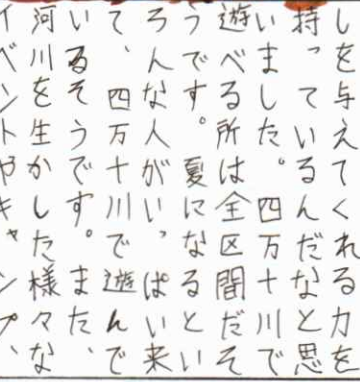 しを与えてくれる力を
持っているんだなと思
いました。四万十川で
遊べる所は全区間だそ
うです。夏になるとい
ろんな人がいっぱい来
て、四万十川で遊んで
いるそうです。また、
河川を生かした様々な
イベントやキャンプ、